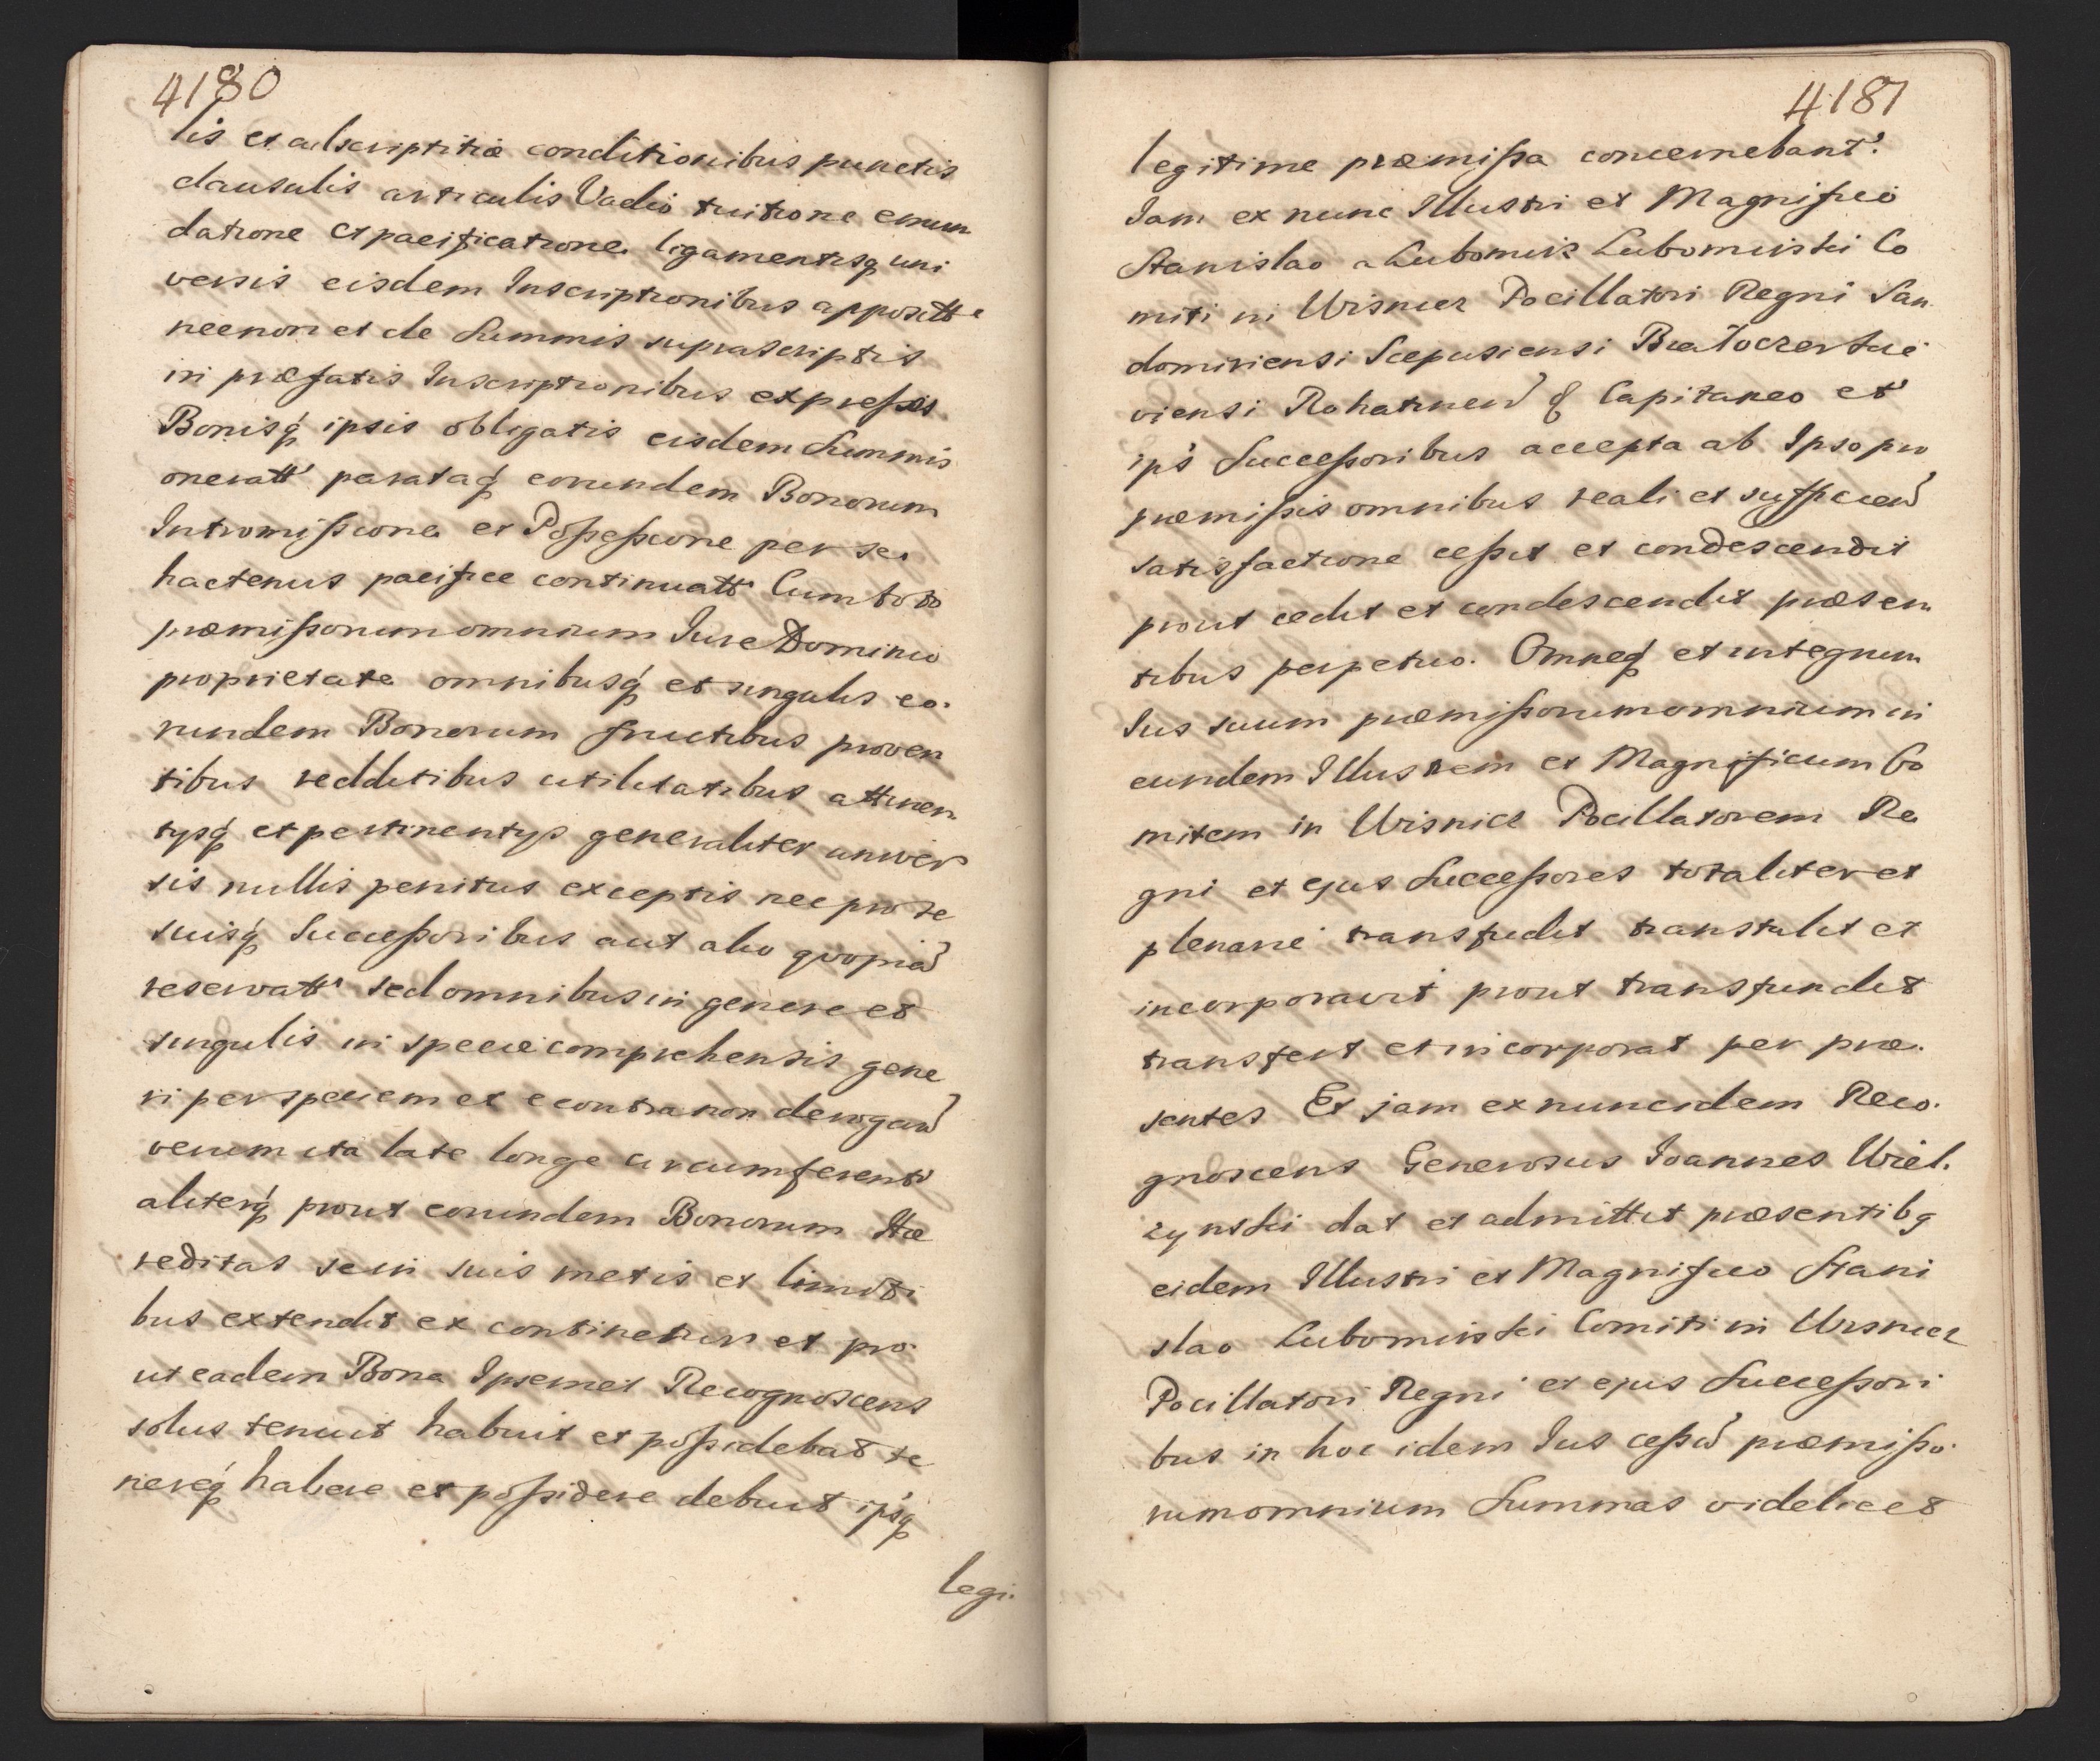 4180
lis et adscriptitiæ conditionibus punctis
clausulis articulis Vadio tuitione emun
datione et pacificatione ligamentisq́ uni
versis eisdem Inscriptionibus apposittt
necnon et de Summis suprascriptis
in præfatis Inscriptionibus expreſsis
Bonisq́ ipsis obligatis eisdem Summis
oneratt parataq́ eorundem Bonorum
Intromiſsione et Poſseſsione per se
hactenus pacifice continuatt Cum toto
præmiſsorum omnium Jure Dominio
proprietate omnibusq́ et singulis eo
rundem Bonorum fructibus proven
tibus redditibus utilitatibus attinen
tysq́ et pertinentys generaliter univer
sis nullis penitus exceptis nec pro se
suisq́ Succeſsoribus aut alio quopiã
reservatt sed omnibus in genere et
singulis in specie comprehensis gene
ri per speciem et econtra non derogan
verum ita late longe circumferenti
aliterq́ prout eorundem Bonorum Hæ
reditas se in suis metis et limiti
bus extendit ex continetur et pro
ut eadem Bona Ipsemet Recognoscens
solus tenuit habuit et poſsidebat te
nereq́ habere et poſsidere debuit ipsq́
legi.
4181
legitime præmiſsa concernebant.
Jam ex nunc Illustri et Magnifico
Stanislao a Lubomirz Lubomirski Co
miti in Wisnicz Pocillatori Regni San
domiriensi Scepusiensi Białocerkie
viensi Rohatinen & Capitaneo et
ips Succeſsoribus accepta ab Ipso pro
præmiſsis omnibus reali et sufficien
satisfactione ceſsit et condescendit
prout cedit et condescendit præsen
tibus perpetuo. Omneq́ et integrum
Jus suum præmiſsorum omnium in
eundem Illustrem et Magnificum Co
mitem in Wisnicz Pocillatorem Re
gni et ejus Succeſsores totaliter et
plenarie transfudit transtulit et
incorporavit prout transfundit
transfert et incorporat per præ
sentes Et jam ex nunc idem Reco
gnoscens Generosus Joannes Wiel.
zynski dat et admittit præsentibq
eidem Illustri et Magnifico Stani
slao Lubomirski Comiti in Wisnicz
Pocillatori Regni et ejus Succeſsori
bus in hoc idem Jus ceſsũ præmiſso
rum omnium Summas videlicet